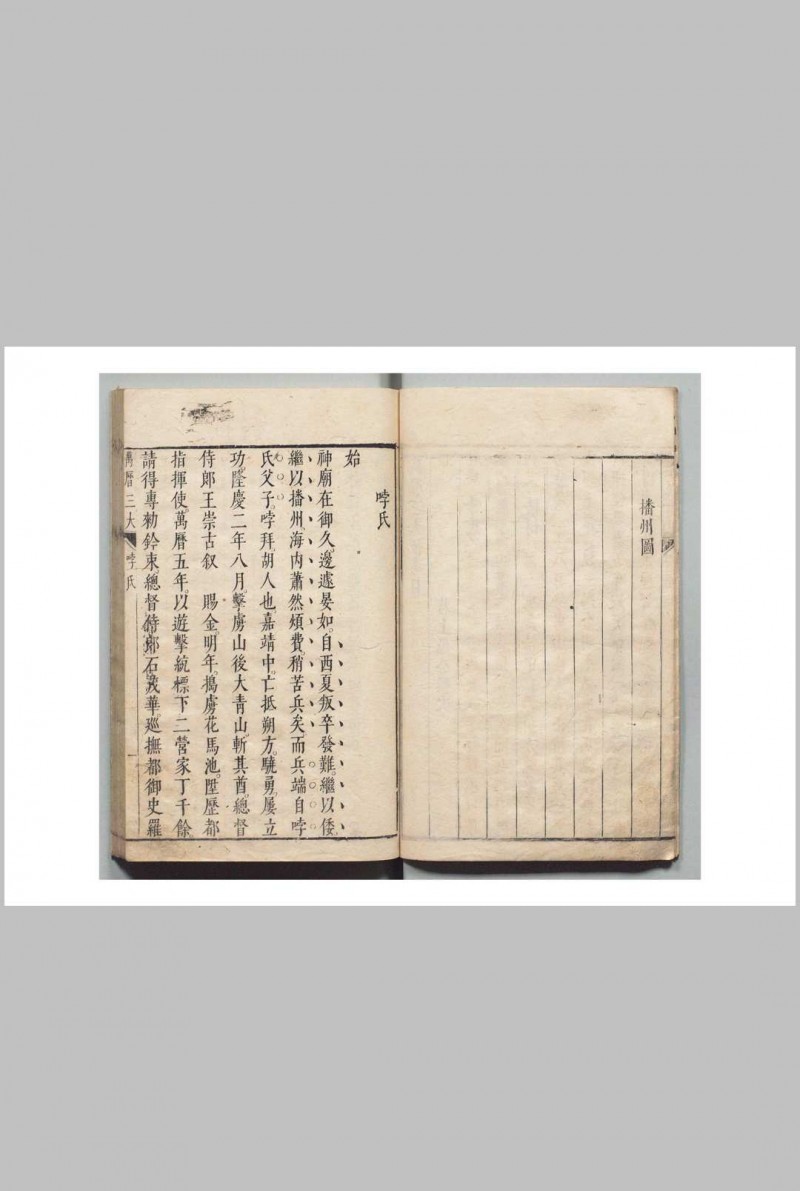 播州圖
哱氏
始
神廟在御久邊遽晏如自西夏叛卒發難繼以倭
繼以播州海内蕭然煩費稍苦兵矣而兵端自哱
氏父子哱拜胡人也嘉靖中亡抵朔方驍勇屢立
功隆慶二年八月擊虜山後大青山斬其酋總督
侍郎王崇古叙　賜金明年搗虜花馬池陞歷都
指揮使萬曆五年以遊擊統標下二營家丁千餘
請得專勑鈐束總督侍郎石茂華巡撫都御史羅
萬曆三大 哱氏 一